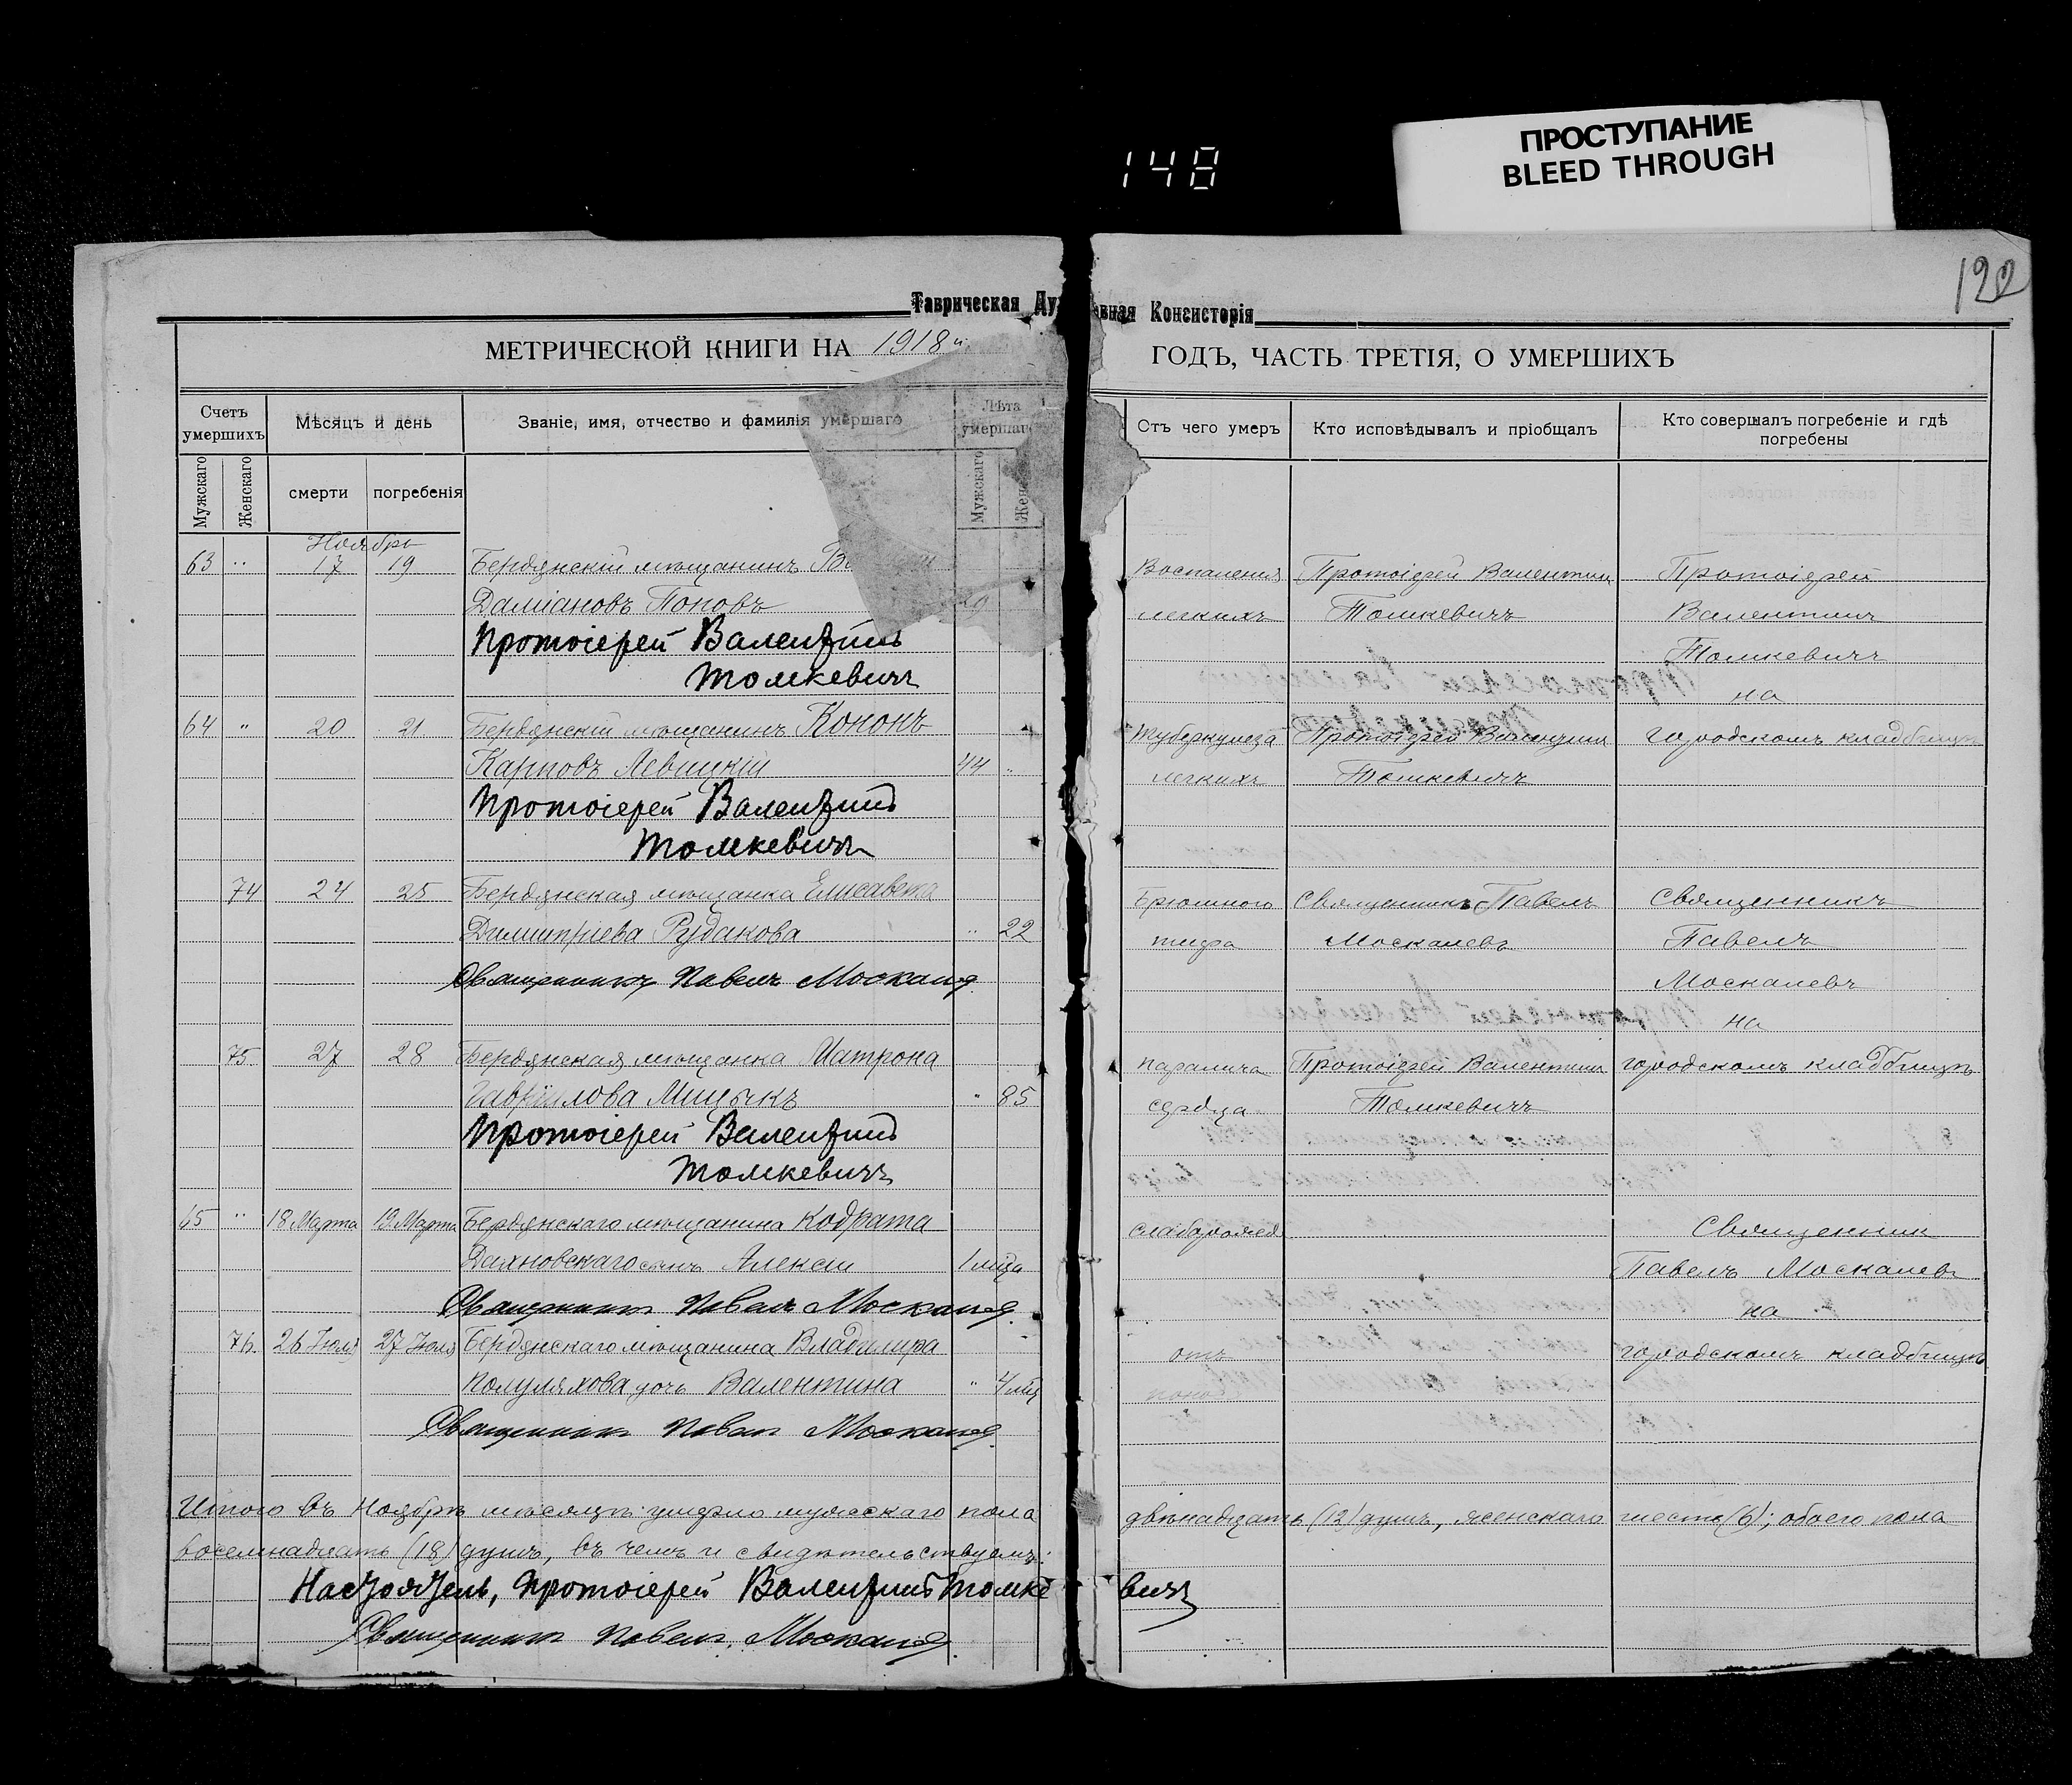 ПРОСТУПАНИЕ
BLEED THROUGH
148
122
Таврическая Ду вная Консисторія
МЕТРИЧЕСКОЙ КНИГИ НА 1918й
ГОДЪ, ЧАСТЬ ТРЕТІЯ, О УМЕРШИХЪ
Счетъ умершихъ
Мѣсяцъ и день
Званіе, имя, отчество и фамилія умершаго
Лѣта умершаго
Мужскаго
Женскаго
смерти
погребенія
Мужскаго
Жен
Отъ чего умеръ
Кто исповѣдывалъ и пріобщалъ
Кто совершалъ погребеніе и гдѣ погребены
Ноябрь
63 " 17 19 Бердянскій мѣщанинъ
Даміановъ Поповъ
Протоіерей Валентинъ
Томкевичъ
64 " 20 21 Бердянскій мѣщанинъ Кононъ
Карповъ Левицкій 44 "
Протоіерей Валентинъ
Томкевичъ
74 24 25 Бердянская мѣщанка Елисавета
Димитріева Рудакова " 22
Священникъ Павелъ Москалев
75 27 28 Бердянская мѣщанка Матрона
Гавріилова Мицыкъ " 85
Протоіерей Валентинъ
Томкевичъ
65 " 18 Марта 19 Марта Бердянскаго мѣщанина Кодрата
Дахновскаго сынъ Алексій 1 мца
Священникъ Павелъ Москалев
76. 26 Іюля 27 Іюля Бердянскаго мѣщанина Владимира
Полуляхова дочь Валентина " 4 мц
Священникъ Павелъ Москалев
Воспаленія Протоіерей Валентинъ Протоіерей
легкихъ Томкевичъ Валентинъ
Томкевичъ
на
Туберкулеза Протоіерей Валентинъ городскомъ кладбищѣ
легкихъ Томкевичъ
Брюшного Священникъ Павелъ Священникъ
тифа Москалевъ Павелъ
Москалевъ
на
паралича Протоіерей Валентинъ городскомъ кладбищѣ
сердца Томкевичъ
слаборожд Священник
Павелъ Москалевъ
на
отъ городскомъ кладбищѣ
понос
Итого въ Ноябрѣ мѣсяцѣ умерло мужескаго пола двѣнадцать (12) душъ, женскаго шесть (6); обоего пола
восемнадцать (18) душъ, въ чемъ и свидѣтельствуемъ:
Настоятель, Протоіерей Валентинъ Томкевичъ
Священникъ Павелъ Москалев